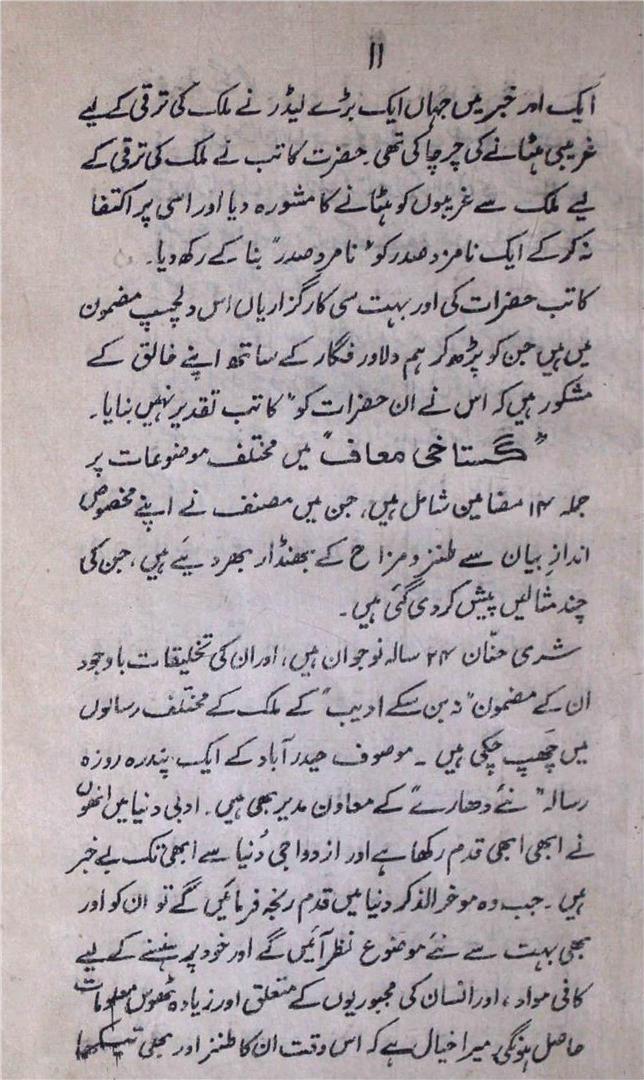 ۱۱
ایک اور خبر میں جہاں ایک بڑے لیڈر نے ملک کی ترقی کے لیے
غریبی ہٹانے کی چرچا کی تھی۔ حضرت کاتب نے ملک کی ترقی کے
لیے ملک سے غریبوں کو ہٹانے کا مشورہ دیا اور اسی پر اکتفا
نہ کر کے ایک نامزد صدر کو "نامرد صدر" بنا کے رکھ دیا۔
کاتب حضرات کی اور بہت سی کارگزاریاں اس دلچسپ مضمون
میں ہیں جن کو پڑھ کر ہم دلاور فگار کے ساتھ اپنے خالق کے
مشکور ہیں کہ اس نے ان حضرات کو "کاتب تقدیر نہیں بنایا۔
"گستاخی معاف" میں مختلف موضوعات پر
جملہ ۱۴ مضامین شامل ہیں، جن میں مصنف نے اپنے مخصوص
اندازِ بیان سے طنز و مزاح کے بھنڈار بھر دیے ہیں، جن کی
چند مثالیں پیش کر دی گئی ہیں۔
شری حنّان ۲۴ سالہ نوجوان ہیں، اور ان کی تخلیقات باوجود
ان کے مضمون "نہ بن سکے ادیب" کے ملک کے مختلف رسالوں
میں چھپ چکی ہیں۔ موصوف حیدرآباد کے ایک پندرہ روزہ
رسالہ "نئے دھارے" کے معاون مدیر بھی ہیں۔ ادبی دنیا میں انھوں
نے ابھی ابھی قدم رکھا ہے اور ازدواجی دُنیا سے ابھی تک بے خبر
ہیں۔ جب وہ موخرالذکر دنیا میں قدم رنجہ فرمائیں گے تو ان کو اور
بھی بہت سے نئے موضوع نظر آئیں گے اور خود پر ہنسنے کے لیے
کافی مواد، اور انسان کی مجبوریوں کے متعلق اور زیادہ ٹھوس معلومات
حاصل ہونگی۔ میرا خیال ہے کہ اس وقت ان کا طنز اور بھی تیکھا